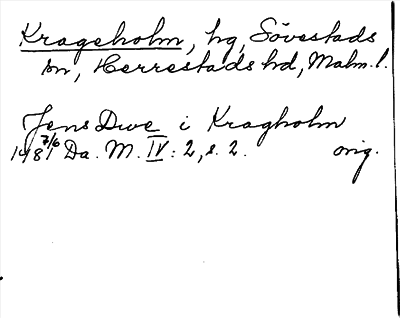 Krageholm, hg, Sövestads
sn, Herrestads hd, Malm. l.
Jens Duve i Kragholm
1481 7/6 Da. M. IV: 2, s. 2. orig.